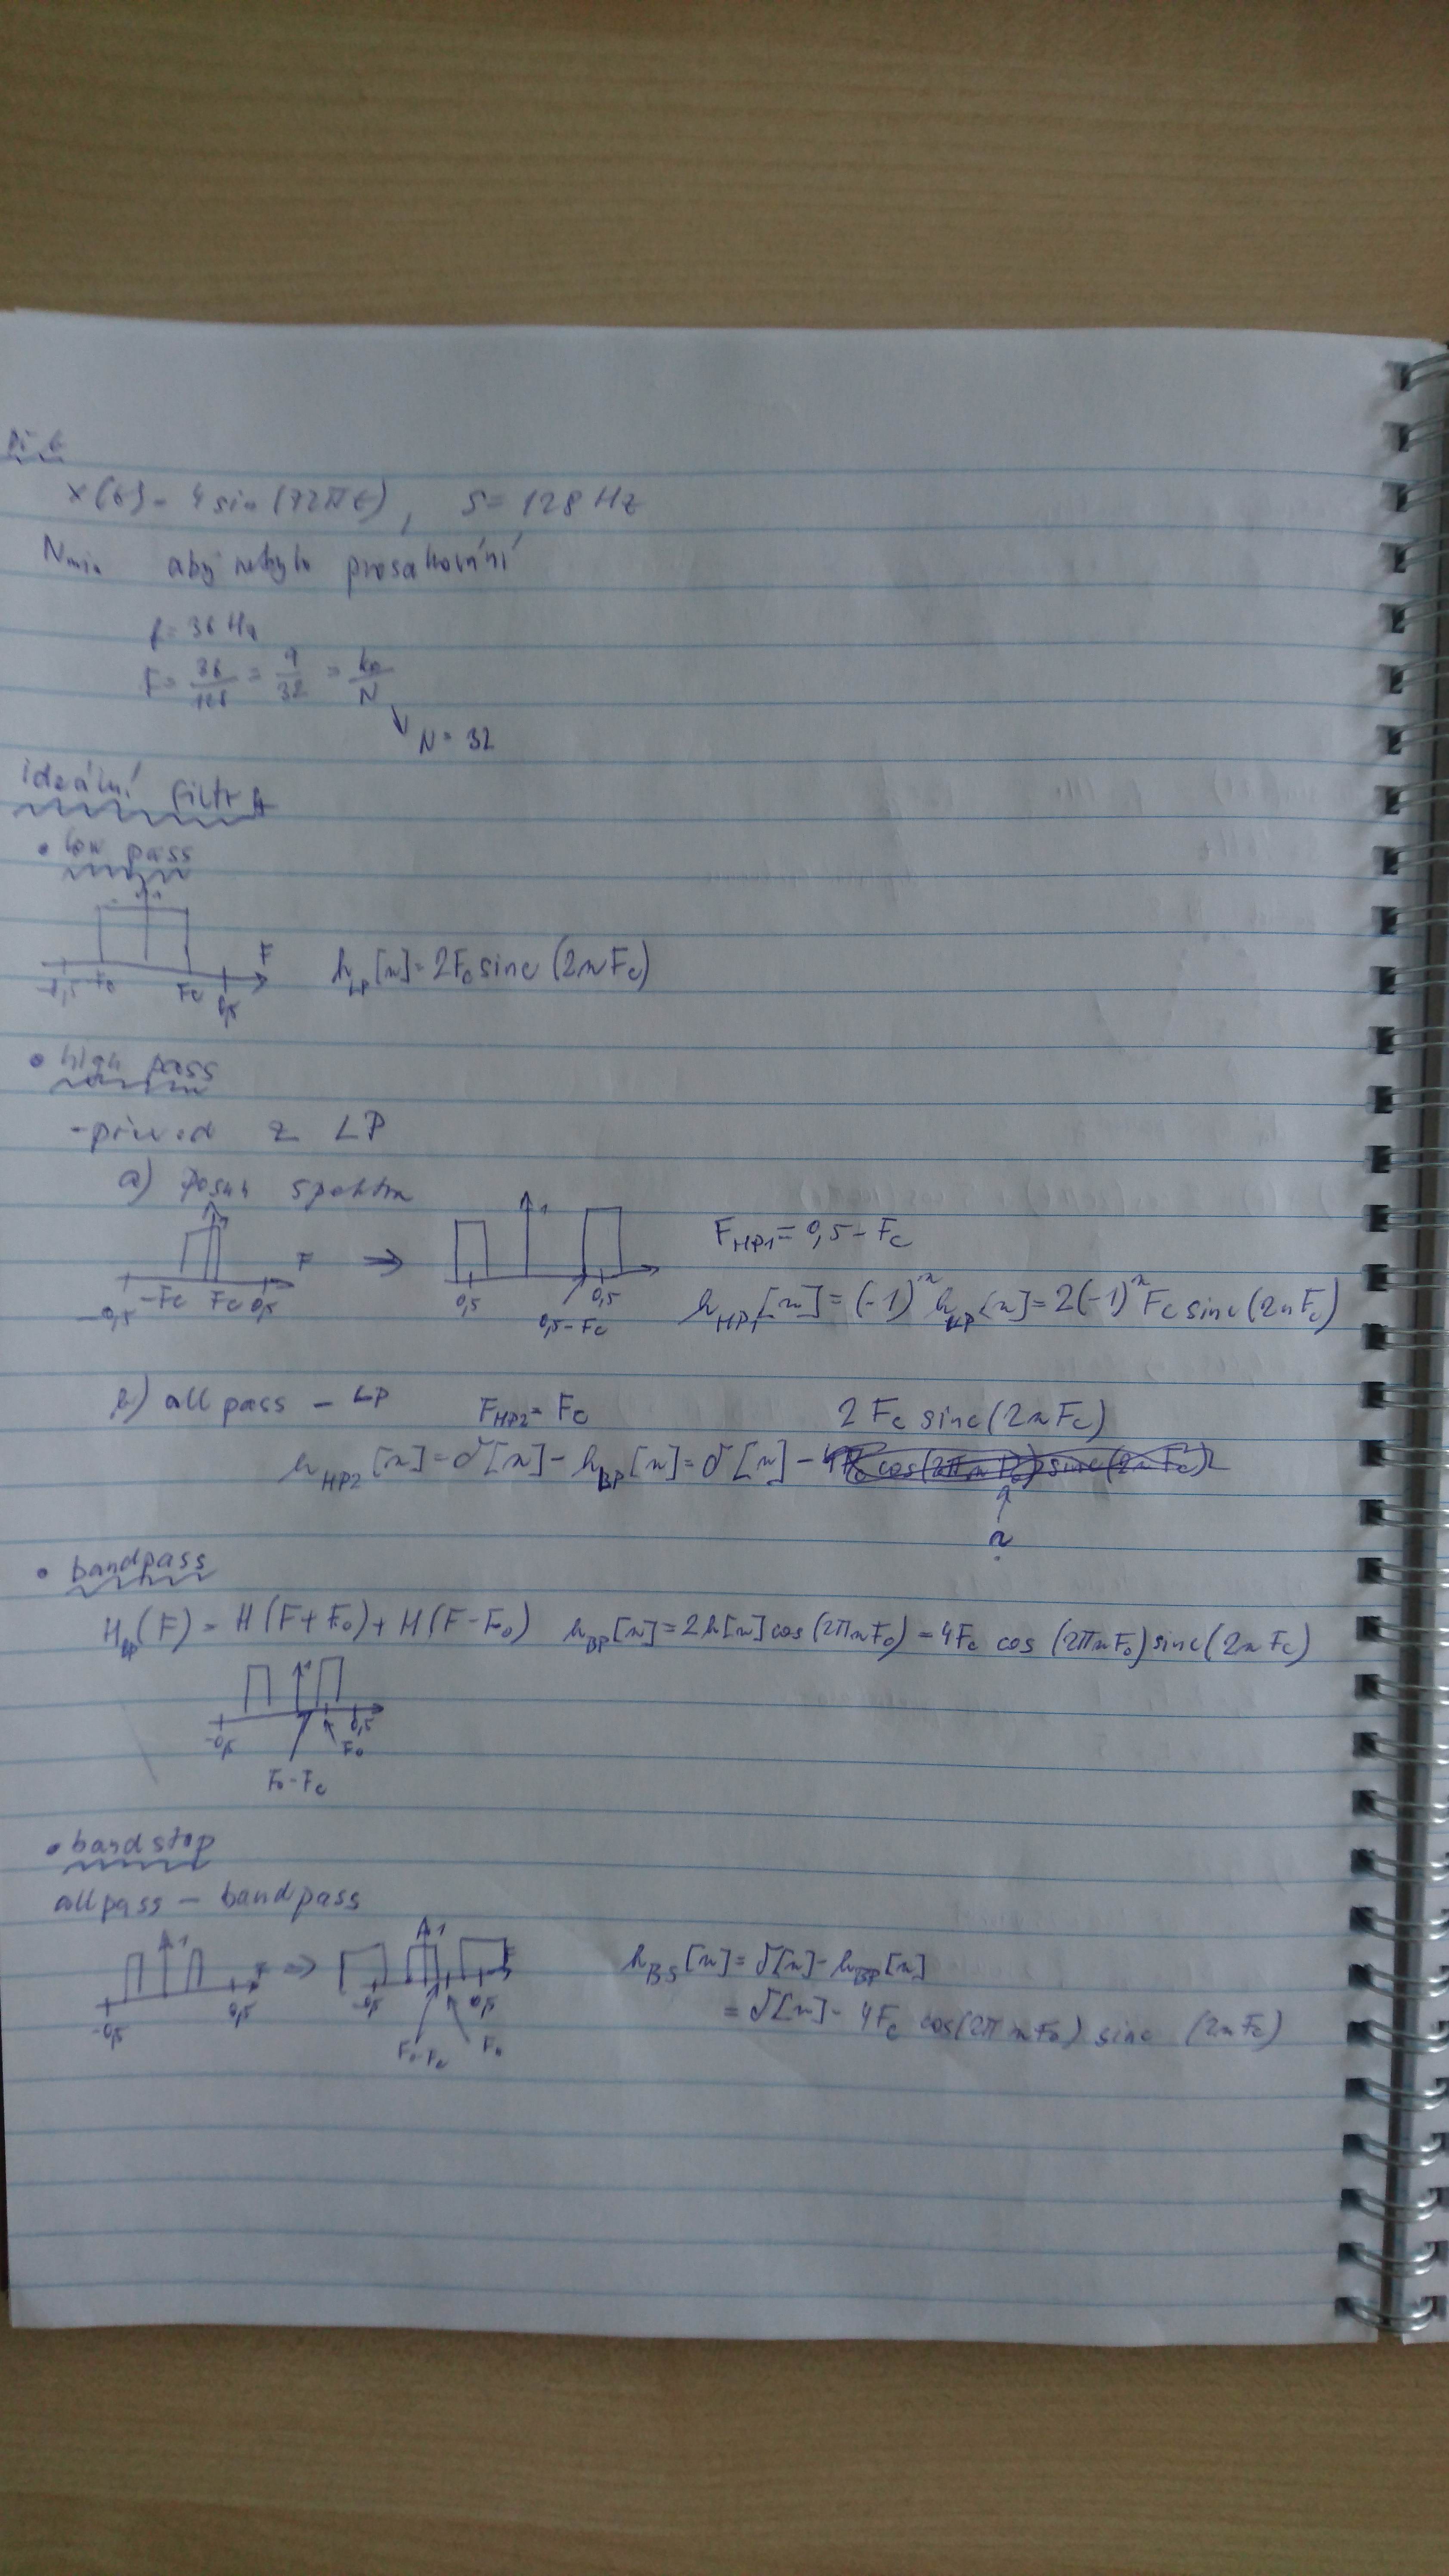 Př. 6
x(t) = 4 sin(72πt), S = 128 Hz
Nmin aby nebylo prosakování
f = 36 Hz
F = 36/128 = 9/32 = k₀/N
N = 32
ideální filtry
• low pass
1
F
-0,5 Fc Fc 0,5
h_LP[n] = 2Fc sinc(2nFc)
• high pass
- převod z LP
a) posun spektra
F ⇒ 1
-0,5 -Fc Fc 0,5
0,5 0,5
0,5-Fc
F_HP1 = 0,5 - Fc
h_HP1[n] = (-1)^n h_LP[n] = 2(-1)^n Fc sinc(2nFc)
b) all pass - LP F_HP2 = Fc 2 Fc sinc(2nFc)
h_HP2[n] = δ[n] - h_BP[n] = δ[n] -
?
• bandpass
H_BP(F) = H(F+F₀) + H(F-F₀) h_BP[n] = 2h[n] cos(2πnF₀) = 4Fc cos(2πnF₀) sinc(2nFc)
-0,5 0,5
F₀
F₀-Fc
• bandstop
allpass - bandpass
1 ⇒ 1
-0,5 0,5 -0,5 0,5
F₀-Fc F₀
h_BS[n] = δ[n] - h_BP[n]
= δ[n] - 4Fc cos(2πnF₀) sinc (2nFc)